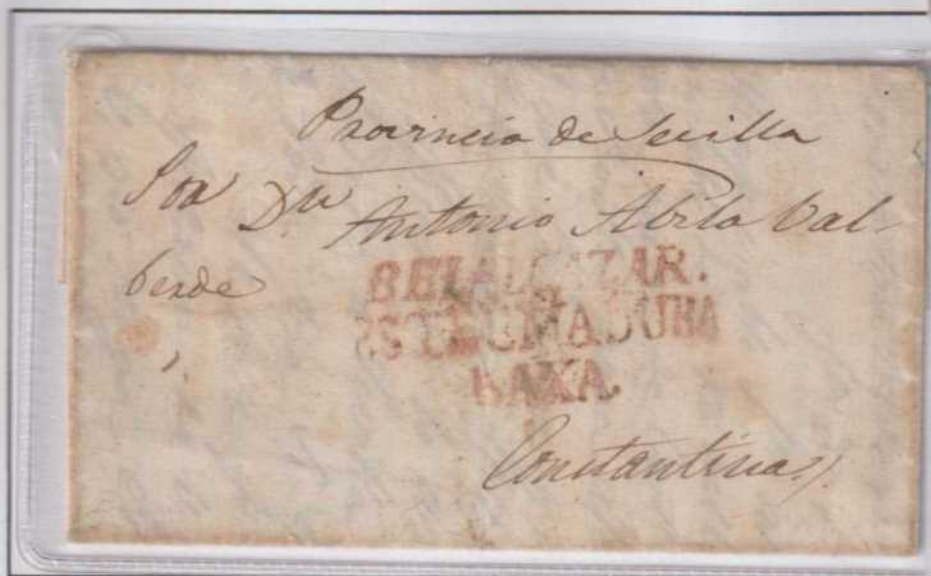 Provincia de Sevilla
Sor Dn Antonio Abila Bal-
berde
BELALCAZAR.
ESTREMADURA
BAXA.
Constantina